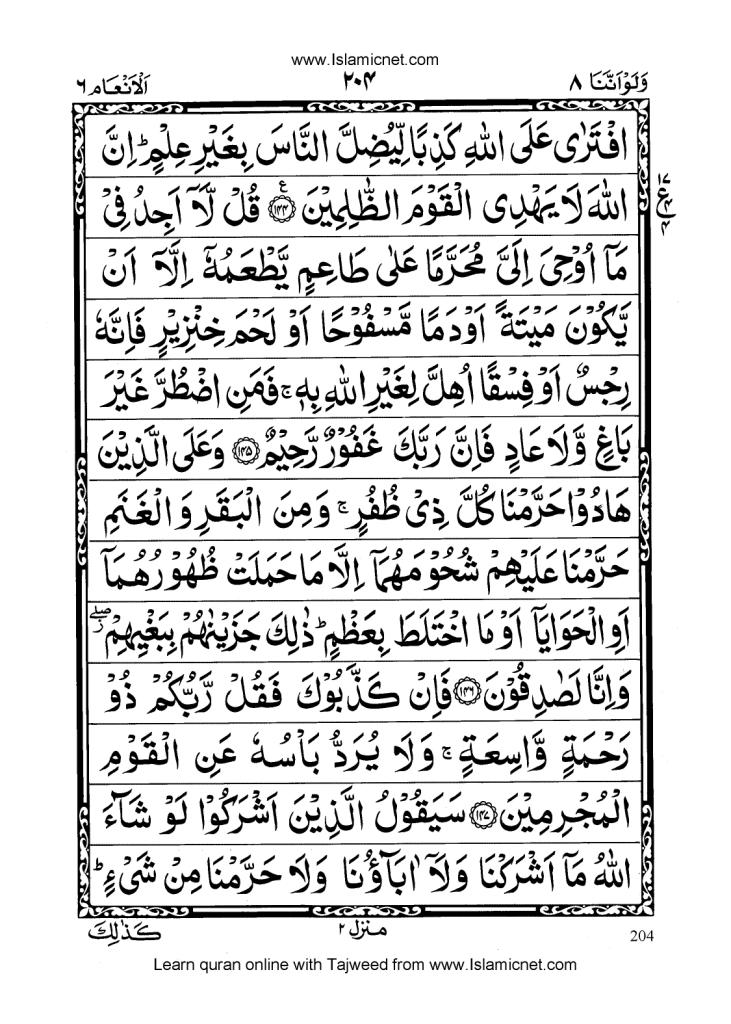 www.Islamicnet.com
وَلَوْاَنَّنَا ٨
٢٠٤
اَلْاَنْعَام ٦
افْتَرٰى عَلَى اللّٰهِ كَذِبًا لِّيُضِلَّ النَّاسَ بِغَيْرِ عِلْمٍ ؕ اِنَّ
اللّٰهَ لَا يَهْدِى الْقَوْمَ الظّٰلِمِيْنَ ۧ ﴿١٤٤﴾ قُلْ لَّاۤ اَجِدُ فِىْ
١٧
ع
٤
٤
مَاۤ اُوْحِىَ اِلَىَّ مُحَرَّمًا عَلٰى طَاعِمٍ يَّطْعَمُهٗۤ اِلَّاۤ اَنْ
يَّكُوْنَ مَيْتَةً اَوْ دَمًا مَّسْفُوْحًا اَوْ لَحْمَ خِنْزِيْرٍ فَاِنَّهٗ
رِجْسٌ اَوْ فِسْقًا اُهِلَّ لِغَيْرِ اللّٰهِ بِهٖ ۚ فَمَنِ اضْطُرَّ غَيْرَ
بَاغٍ وَّلَا عَادٍ فَاِنَّ رَبَّكَ غَفُوْرٌ رَّحِيْمٌ ﴿١٤٥﴾ وَعَلَى الَّذِيْنَ
هَادُوْا حَرَّمْنَا كُلَّ ذِىْ ظُفُرٍ ۚ وَمِنَ الْبَقَرِ وَالْغَنَمِ
حَرَّمْنَا عَلَيْهِمْ شُحُوْمَهُمَاۤ اِلَّا مَا حَمَلَتْ ظُهُوْرُهُمَاۤ
اَوِ الْحَوَايَاۤ اَوْ مَا اخْتَلَطَ بِعَظْمٍ ؕ ذٰلِكَ جَزَيْنٰهُمْ بِبَغْيِهِمْ ۖز
وَاِنَّا لَصٰدِقُوْنَ ﴿١٤٦﴾ فَاِنْ كَذَّبُوْكَ فَقُلْ رَّبُّكُمْ ذُوْ
رَحْمَةٍ وَّاسِعَةٍ ۚ وَلَا يُرَدُّ بَاْسُهٗ عَنِ الْقَوْمِ
الْمُجْرِمِيْنَ ﴿١٤٧﴾ سَيَقُوْلُ الَّذِيْنَ اَشْرَكُوْا لَوْ شَآءَ
اللّٰهُ مَاۤ اَشْرَكْنَا وَلَاۤ اٰبَآؤُنَا وَلَا حَرَّمْنَا مِنْ شَىْءٍ ؕ
204
منزل ٢
كَذٰلِكَ
Learn quran online with Tajweed from www.Islamicnet.com